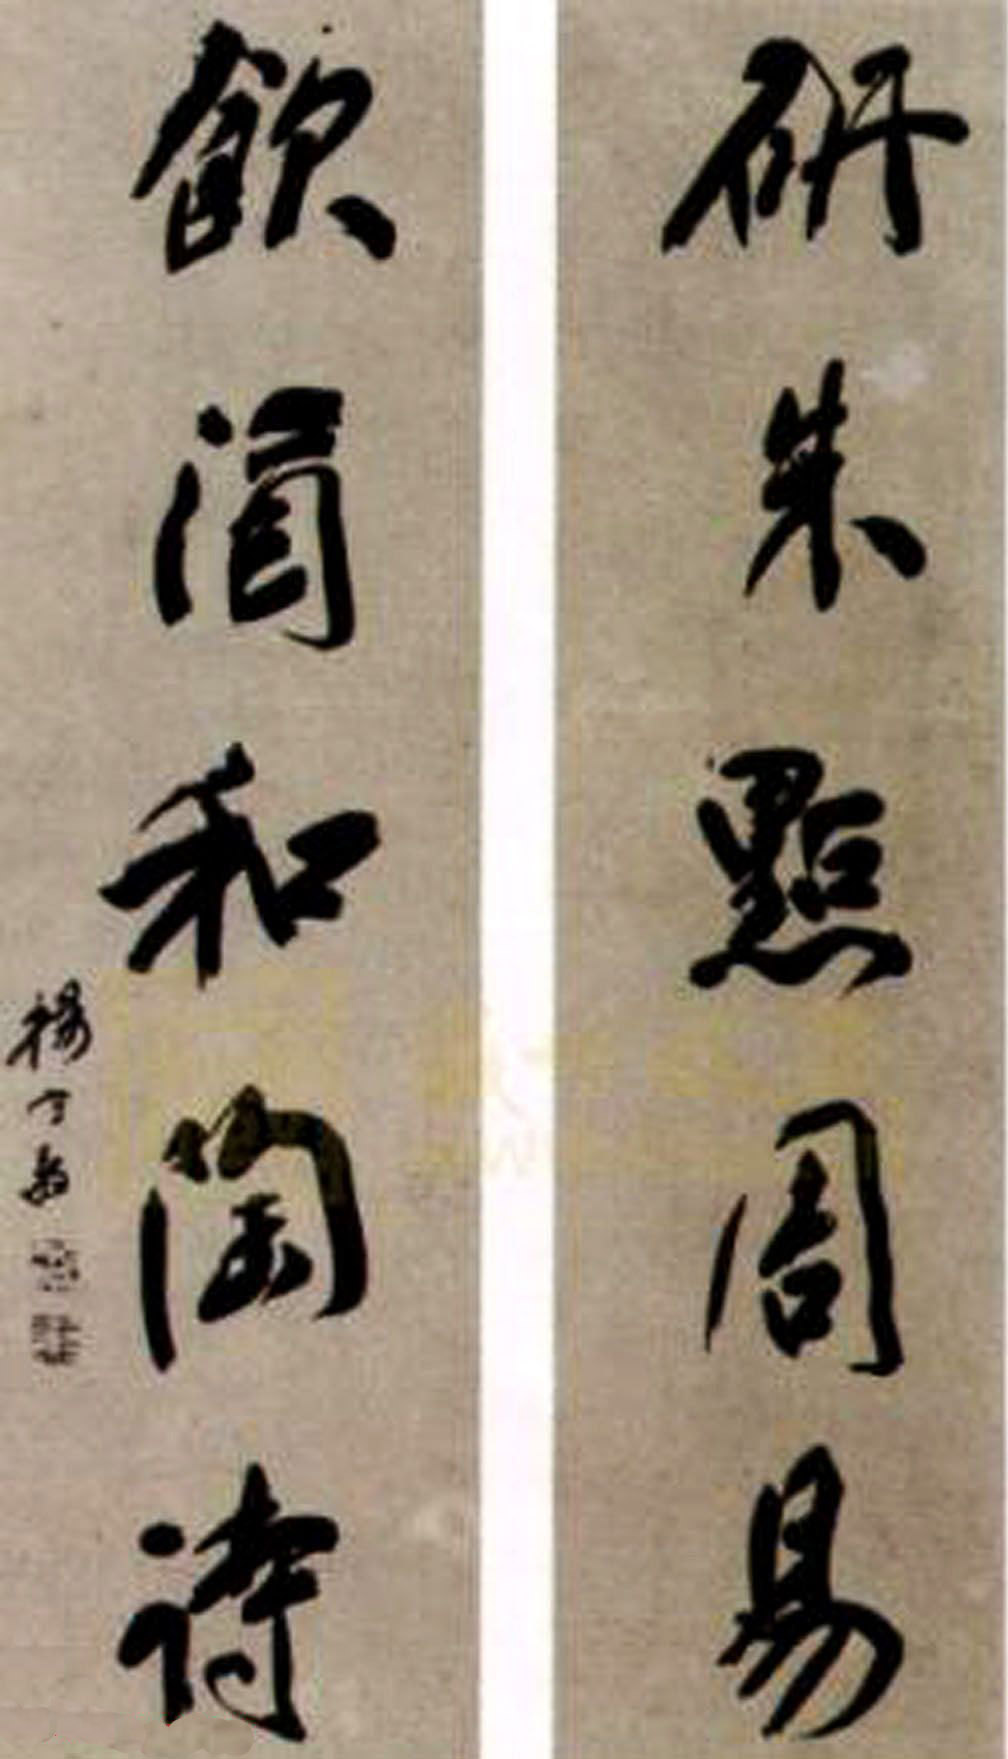 研朱點周易
飲酒和陶詩
楊守敬